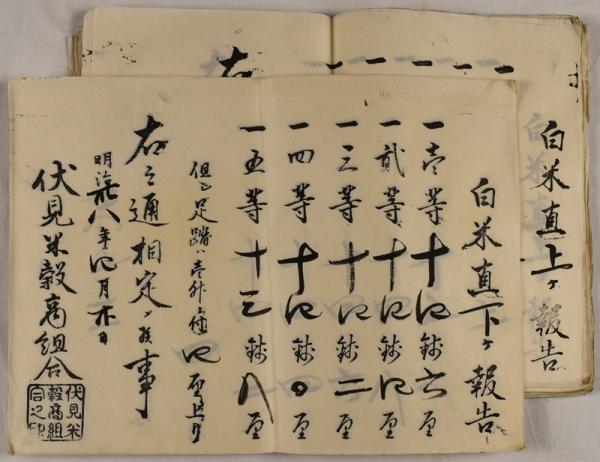 白米直上ヶ報告
右
白米直下ヶ報告
一壱等十四銭六厘
一貮等十四銭四厘
一三等十四銭二厘
一四等十四銭〇厘
一五等十三銭八厘
但シ足踏ハ壱升ニ付四厘上り
右之通相定メ候事
明治八年四月日
伏見米穀商組合
伏見米
穀商組
合之印